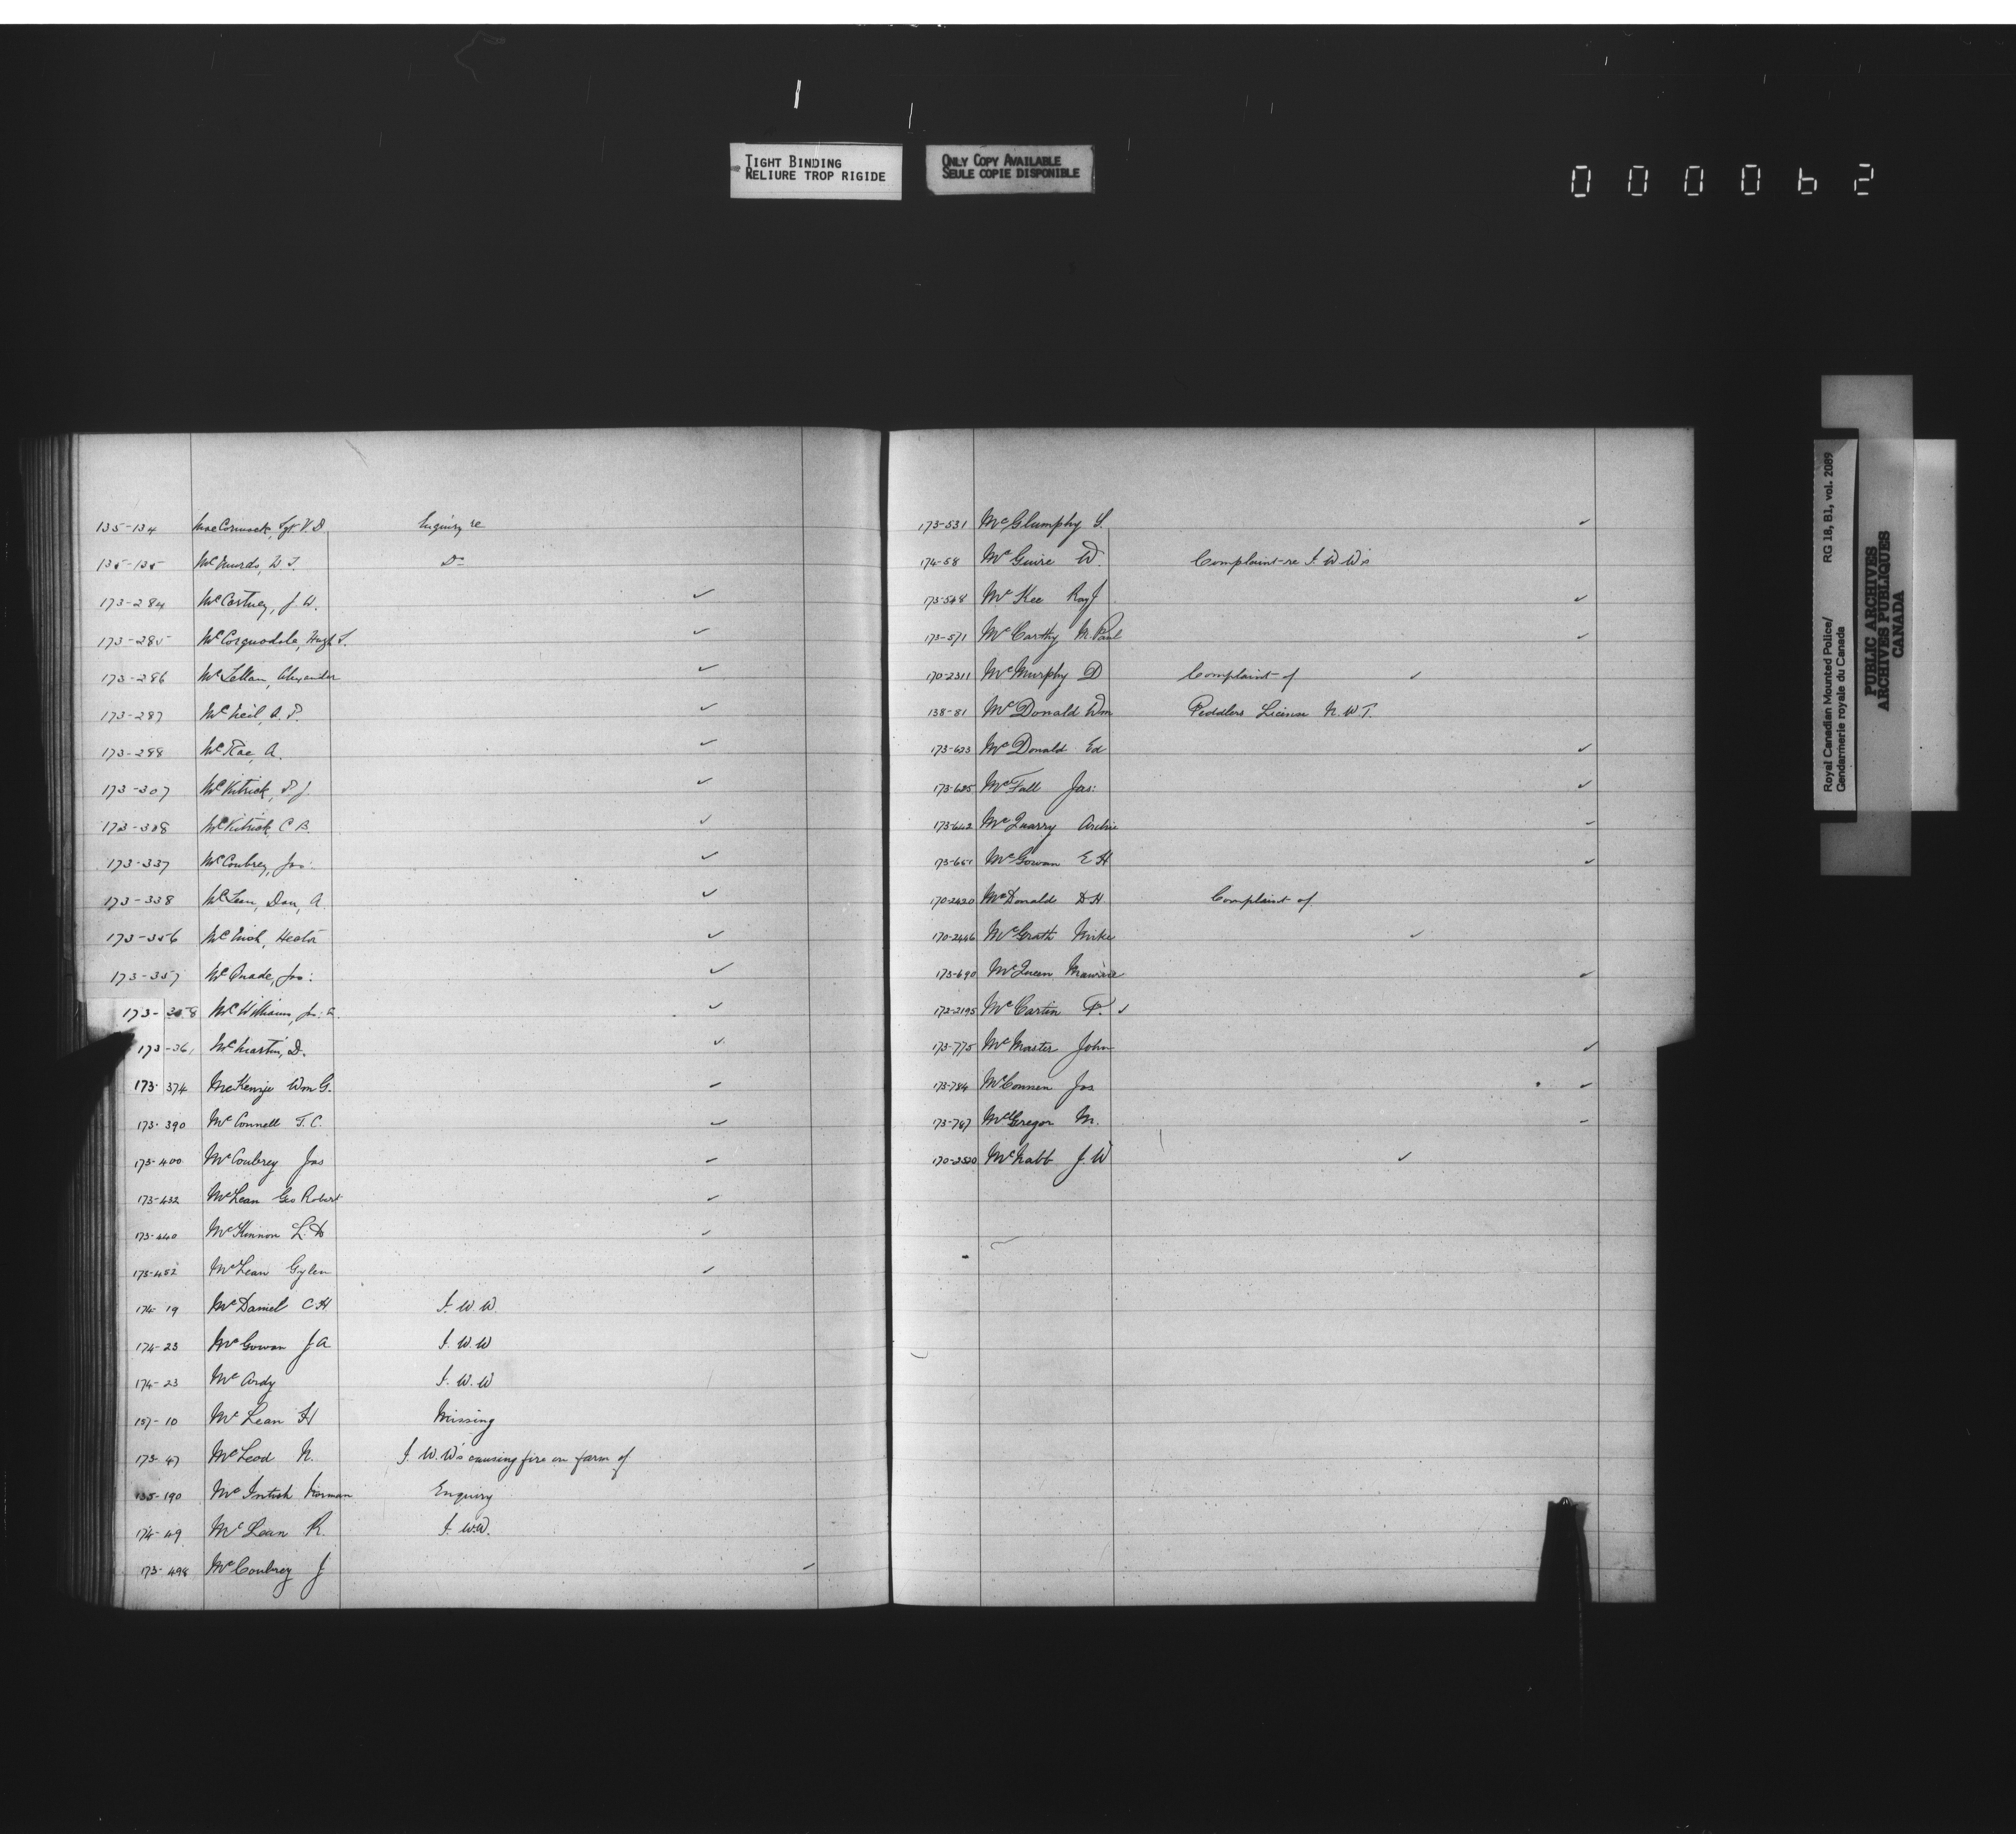 TIGHT BINDING
RELIURE TROP RIGIDE
ONLY COPY AVAILABLE
SEULE COPIE DISPONIBLE
000062
135-134 MacCormack, Sgt. V.D. Enquiry re
135-135 Do
173-284 McCartney, J.W. ✓
173-285 McCorquodale, Hugh ✓
173-286 McLellan, Alexander ✓
173-287 McNeil, A.P. ✓
173-288 McRae, A. ✓
173-307 McKitrick, P.J. ✓
173-308 McKitrick C.B. ✓
173-337 McCoubrey, Jas: ✓
173-338 McLean, Dan, A. ✓
173-356 Hector ✓
173-357 McQuade, Jas: ✓
173-358 McWilliams, ✓
173-361 McMartin, D. ✓
173-374 McKenzie Wm G. ✓
173-390 McConnell T.C. ✓
173-400 McCoubrey Jas ✓
173-432 McLean Geo Robert ✓
173-440 McKinnon L.D ✓
173-452 McLean Gylen ✓
174-19 McDaniel C H I.W.W.
174-23 McGowan J A I.W.W
174-23 McArdy I.W.W
157-10 McLean H Missing
173-47 McLeod N. I.W.W's causing fire on farm of
135-190 McIntosh Norman Enquiry
174-49 McLean R. I.W.W.
173-498 McCoubrey J ✓
173-531 McGlumphy S. ✓
174-58 McGuire W. Complaint re I.W.W's
173-548 McKee Ray J ✓
173-571 McCarthy M. Paul ✓
170-2311 McMurphy D Complaint of ✓
138-81 McDonald Wm Peddlers License N.W.T.
173-623 McDonald Ed ✓
173-625 McFall Jas: ✓
173-642 McQuarry Archie ✓
173-651 McGowan E H ✓
170-2420 McDonald D H Complaint of
170-2446 McGrath Mike ✓
173-690 McQueen ✓
172-2195 McCartin F. ✓
173-775 McMaster John ✓
173-784 McConnen Jas ✓
173-787 McGregor M. ✓
170-2520 McNabb J.W ✓
Royal Canadian Mounted Police/ RG 18, B1, vol. 2089
Gendarmerie royale du Canada
PUBLIC ARCHIVES
ARCHIVES PUBLIQUES
CANADA